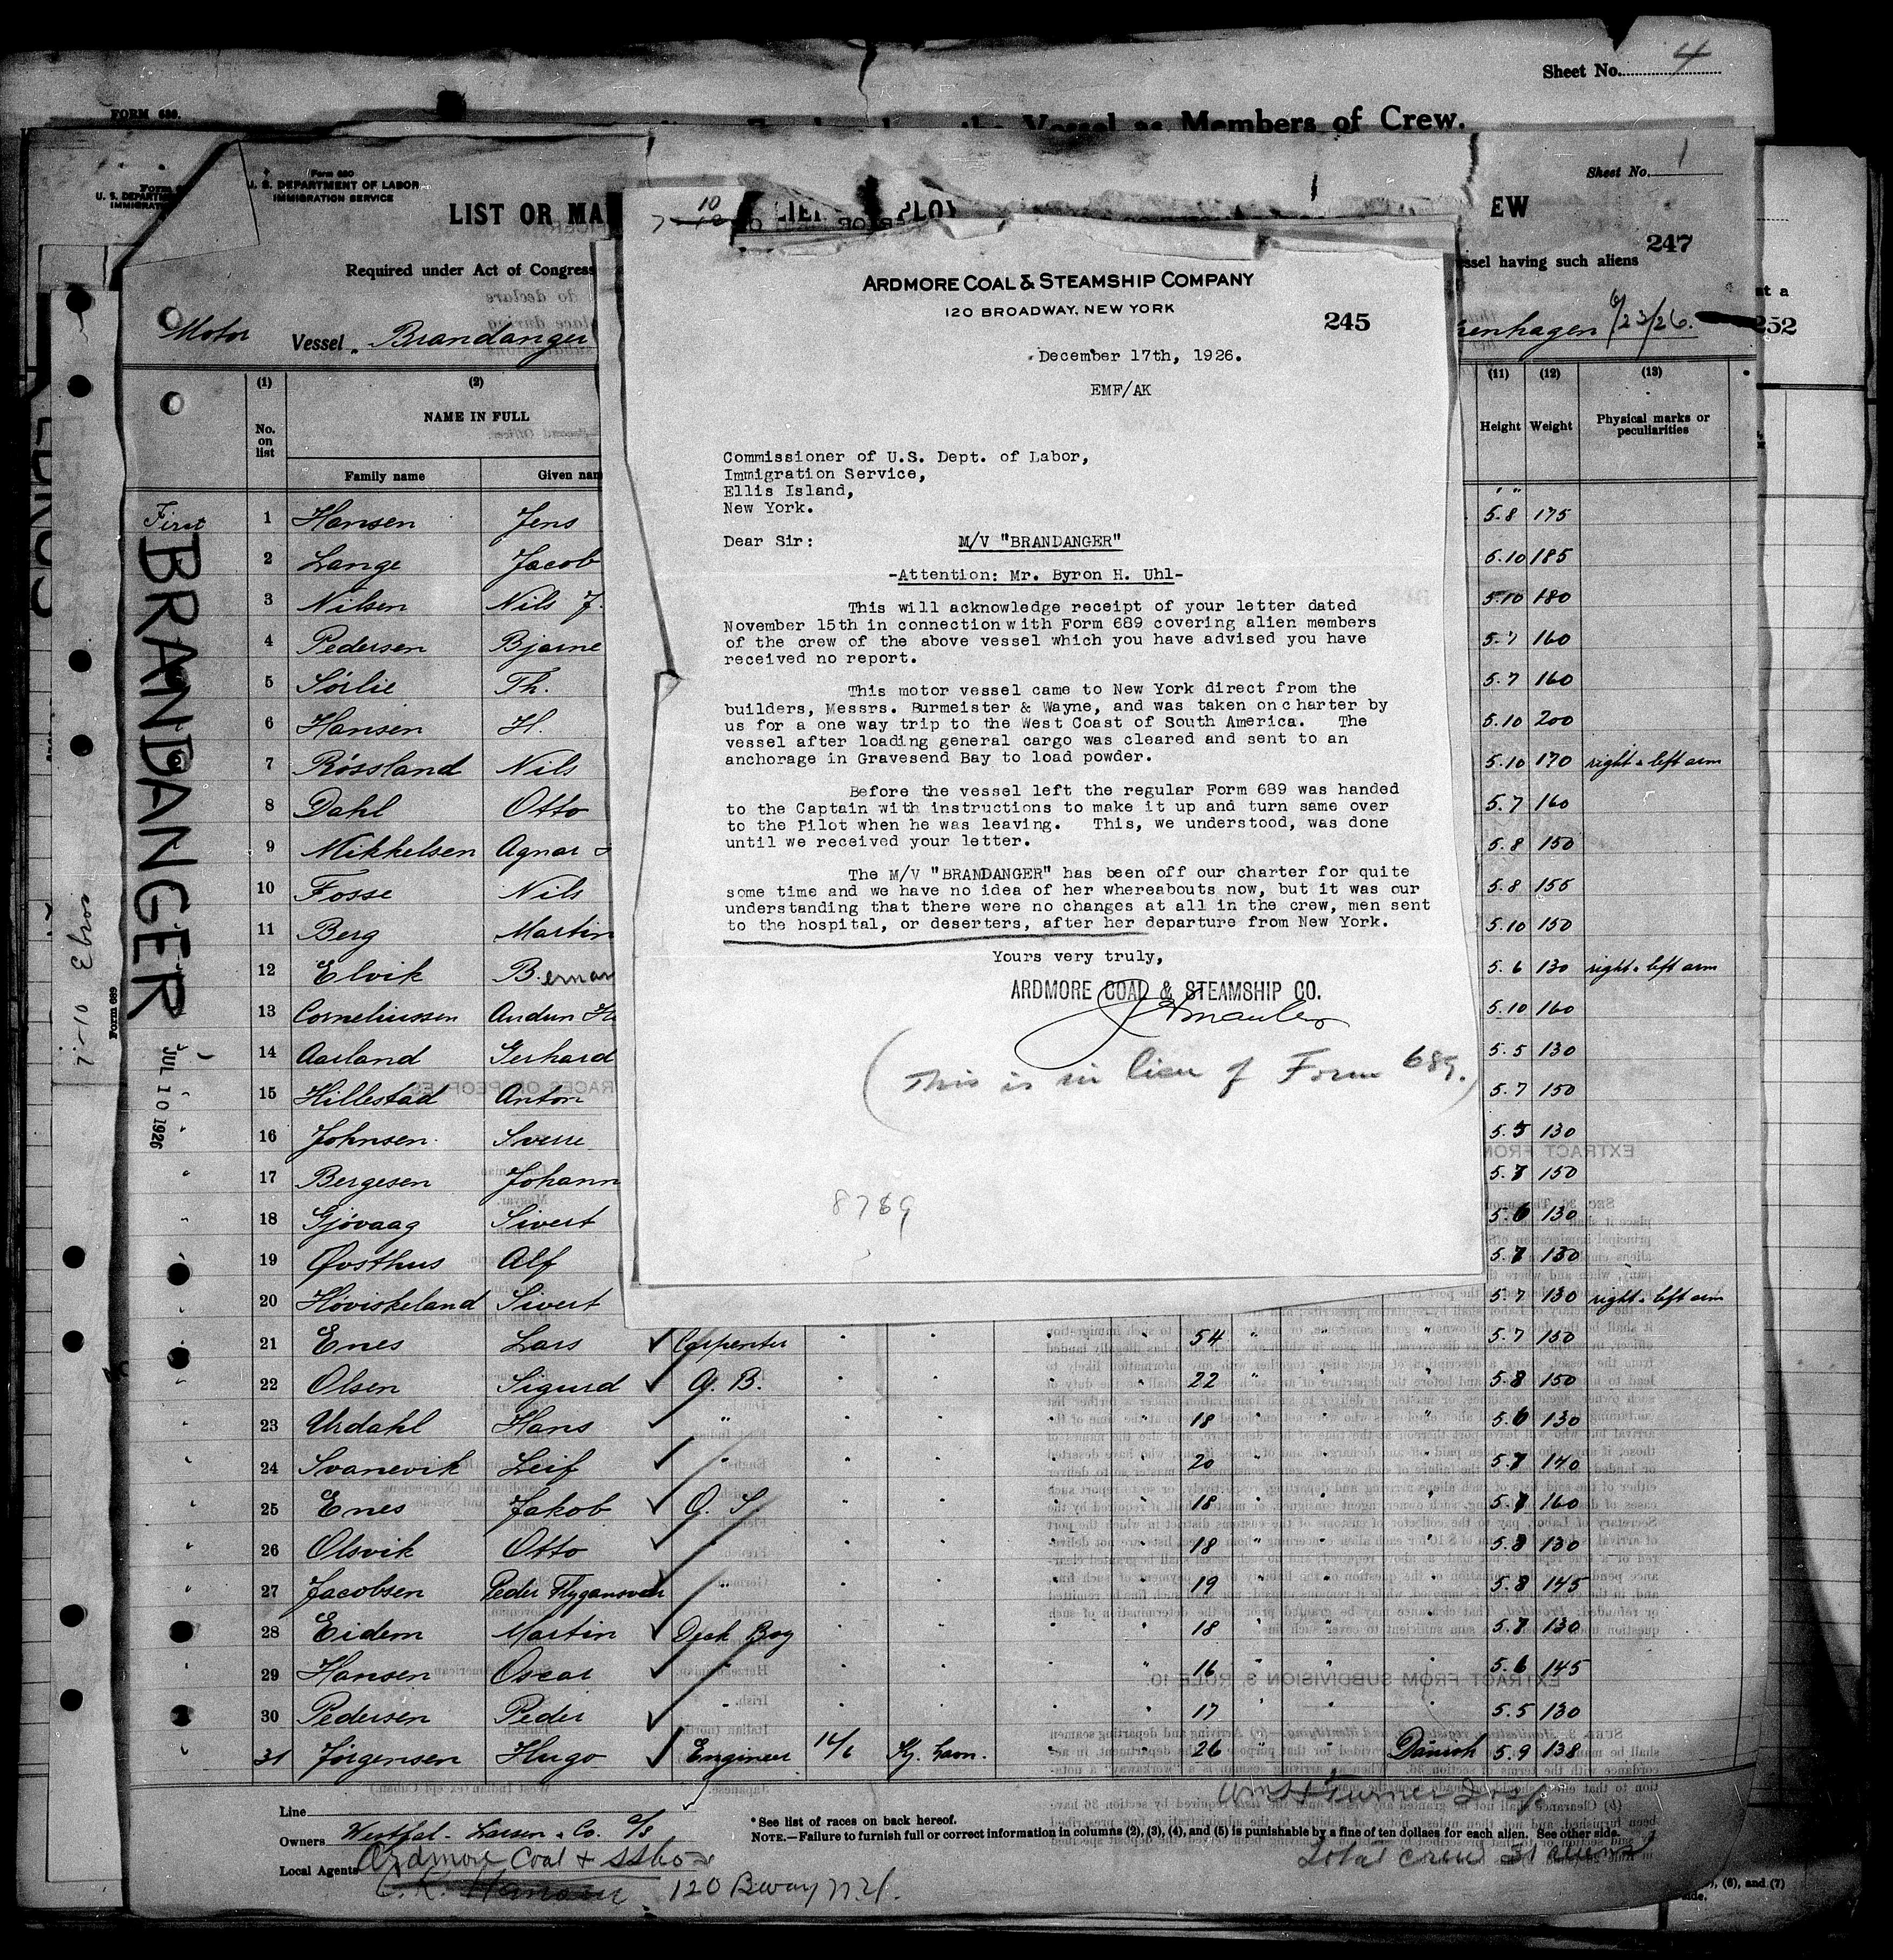 Sheet No. 4
FORM 689.
the Vessel as Members of Crew.
Form 680
U. S. DEPARTMENT OF LABOR
IMMIGRATION SERVICE
Sheet No. 1
LIST OR MA
EW
247
Required under Act of Congress
ssel having such aliens
Motor Vessel Brandanger
enhagen 6/23/26.
252
(1) (2) (11) (12) (13)
No. on list
NAME IN FULL
Family name Given nam
Height Weight Physical marks or peculiarities
BRANDANGER
JUL 10 1926
7-10 Ebros
Form 689
7 10
ARDMORE COAL & STEAMSHIP COMPANY
120 BROADWAY, NEW YORK
245
December 17th, 1926.
EMF/AK
Commissioner of U.S. Dept. of Labor,
Immigration Service,
Ellis Island,
New York.
Dear Sir: M/V "BRANDANGER"
-Attention: Mr. Byron H. Uhl-
This will acknowledge receipt of your letter dated
November 15th in connection with Form 689 covering alien members
of the crew of the above vessel which you have advised you have
received no report.
This motor vessel came to New York direct from the
builders, Messrs. Burmeister & Wayne, and was taken on charter by
us for a one way trip to the West Coast of South America. The
vessel after loading general cargo was cleared and sent to an
anchorage in Gravesend Bay to load powder.
Before the vessel left the regular Form 689 was handed
to the Captain with instructions to make it up and turn same over
to the Pilot when he was leaving. This, we understood, was done
until we received your letter.
The M/V "BRANDANGER" has been off our charter for quite
some time and we have no idea of her whereabouts now, but it was our
understanding that there were no changes at all in the crew, men sent
to the hospital, or deserters, after her departure from New York.
Yours very truly,
ARDMORE COAL & STEAMSHIP CO.
(This is in lieu of Form 689.)
8769
First 1 Hansen Jens 5.8 175
2 Lange Jacob 5.10 185
3 Nilsen Nils J. 5.10 180
4 Pedersen Bjarne 5.7 160
5 Sørlie Th. 5.7 160
6 Hansen H. 5.10 200
7 Røssland Nils 5.10 170 right & left arm
8 Dahl Otto 5.7 160
9 Mikkelsen Agnar 5.8 150
10 Fosse Nils 5.8 155
11 Berg Martin 5.10 150
12 Elvik Bernar 5.6 130 right & left arm
13 Corneliussen Andun 5.10 160
14 Aarland Gerhard 5.5 130
15 Hillestad Anton 5.7 150
16 Johnsen Sverre 5.5 130
17 Bergesen Johann 5.7 150
18 Gjøvaag Sivert 5.6 130
19 Øvsthus Alf 5.7 130
20 Høviskeland Sivert 5.7 130 right & left arm
21 Enes Lars Carpenter 54 " " 5.7 150
22 Olsen Sigurd A. B. 22 " " 5.8 150
23 Urdahl Hans " 18 " " 5.6 130
24 Svanevik Leif " 20 " " 5.7 140
25 Enes Jakob O. S. 18 " " 5.7 160
26 Olsvik Otto " 18 " " 5.8 130
27 Jacobsen Peder " 19 " " 5.8 145
28 Eidem Martin Deck Boy 18 " " 5.7 130
29 Hansen Oscar " 16 " " 5.6 145
30 Pedersen Peder " 17 " " 5.5 130
31 Jørgensen Hugo Engineer 14/6 26 " " Danish 5.9 138
Line
Owners Westfal-Larsen & Co. A/S
Local Agents Ardmore Coal & SS Co
120 Bway N.Y.
*See list of races on back hereof.
NOTE.—Failure to furnish full or correct information in columns (2), (3), (4), and (5) is punishable by a fine of ten dollars for each alien. See other side.
Total crew 31 aliens
, (6), and (7)
side.